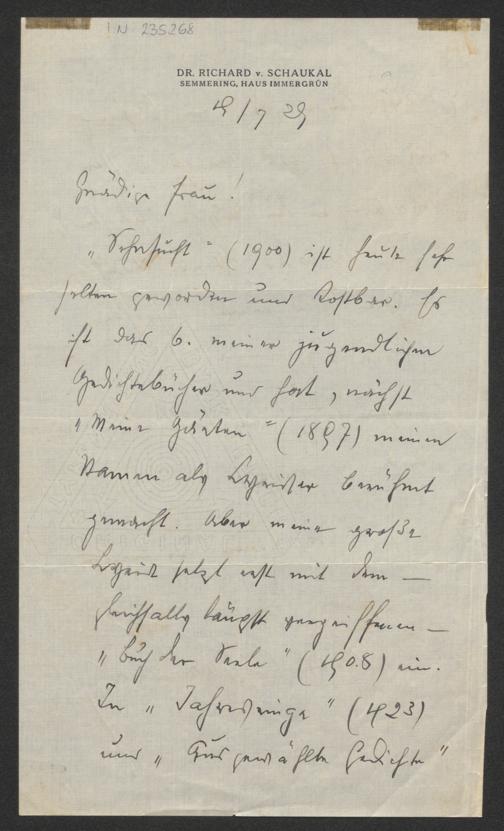 I.N 235268
DR. RICHARD v. SCHAUKAL
SEMMERING, HAUS IMMERGRÜN
Gnädige Frau!
„Sehnsucht" (1900) ist heute sehr
selten geworden und kostbar. Es
ist das 6. meiner jugendlichen
Gedichtbücher und hat, nächst
„Meine Gärten" (1897) meinen
Namen als Lyriker berühmt
gemacht. Aber meine große
Lyrik setzt erst mit dem —
gleichfalls längst vergriffenen —
„Buch der Seele" (1908) ein.
In „Jahresringe" (1923)
und „Ausgewählte Gedichte"